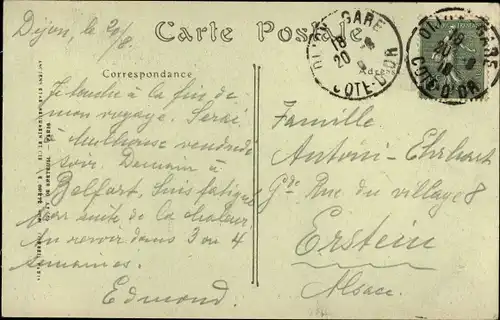 Dijon, le 20/8.
Carte Postale
Correspondance
Adresse
GARE
18
20
COTE-D'OR
18
20
COTE-D'OR
Je touche à la fin de
mon voyage. Serai
à Mulhouse vendredi
soir. Demain à
Belfort. Suis fatigué
par suite de la chaleur.
Au revoir dans 3 ou 4
semaines.
Edmond
Famille
Antoni-Ehrhart
Gde Rue du village 8
Erstein
Alsace